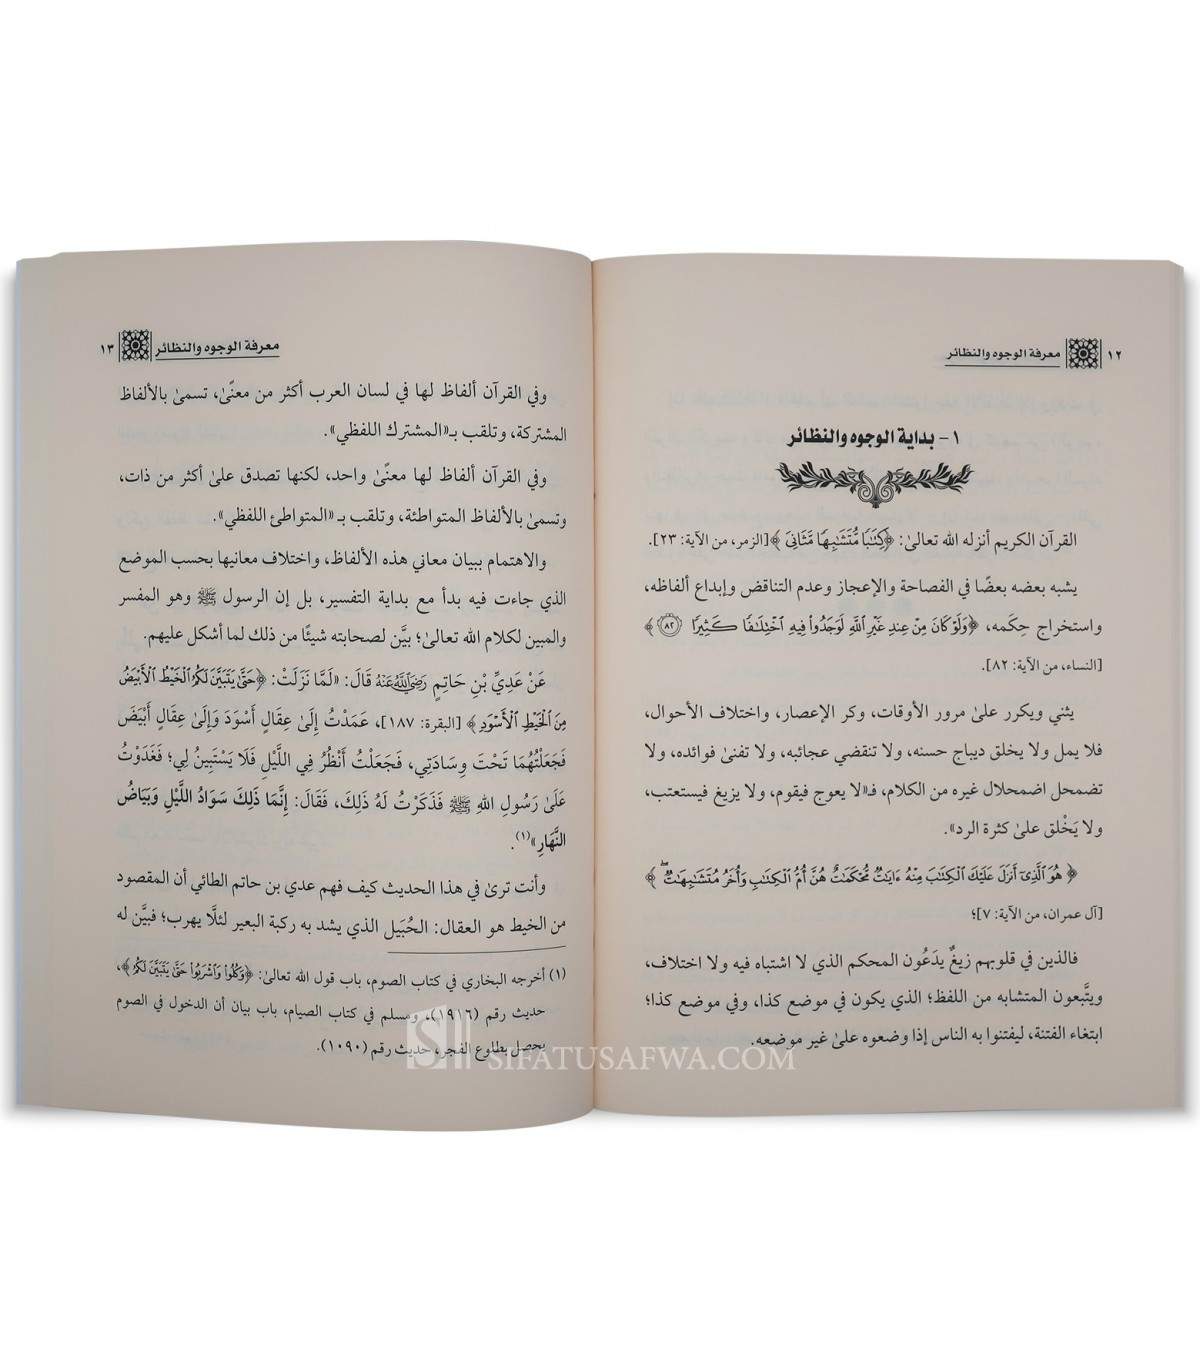 ١٢ معرفة الوجوه والنظائر
١- بداية الوجوه والنظائر
القرآن الكريم أنزله الله تعالىٰ: ﴿كِتَٰبًا مُّتَشَٰبِهًا مَّثَانِيَ﴾ [الزمر، من الآية: ٢٣].
يشبه بعضه بعضًا في الفصاحة والإعجاز وعدم التناقض وإبداع ألفاظه،
واستخراج حِكمه، ﴿وَلَوْ كَانَ مِنْ عِندِ غَيْرِ ٱللَّهِ لَوَجَدُوا۟ فِيهِ ٱخْتِلَٰفًا كَثِيرًا ٨٢﴾
[النساء، من الآية: ٨٢].
يثني ويكرر علىٰ مرور الأوقات، وكر الإعصار، واختلاف الأحوال،
فلا يمل ولا يخلق ديباج حسنه، ولا تنقضي عجائبه، ولا تفنىٰ فوائده، ولا
تضمحل اضمحلال غيره من الكلام، فـ«لا يعوج فيقوم، ولا يزيغ فيستعتب،
ولا يَخْلق علىٰ كثرة الرد».
﴿هُوَ ٱلَّذِىٓ أَنزَلَ عَلَيْكَ ٱلْكِتَٰبَ مِنْهُ ءَايَٰتٌ مُّحْكَمَٰتٌ هُنَّ أُمُّ ٱلْكِتَٰبِ وَأُخَرُ مُتَشَٰبِهَٰتٌ ۖ﴾
[آل عمران، من الآية: ٧]؛
فالذين في قلوبهم زيغٌ يدَعُون المحكم الذي لا اشتباه فيه ولا اختلاف،
ويتَّبعون المتشابه من اللفظ؛ الذي يكون في موضع كذا، وفي موضع كذا؛
ابتغاء الفتنة، ليفتنوا به الناس إذا وضعوه علىٰ غير موضعه.
معرفة الوجوه والنظائر ١٣
وفي القرآن ألفاظ لها في لسان العرب أكثر من معنًىٰ، تسمىٰ بالألفاظ
المشتركة، وتلقب بـ«المشترك اللفظي».
وفي القرآن ألفاظ لها معنًىٰ واحد، لكنها تصدق علىٰ أكثر من ذات،
وتسمىٰ بالألفاظ المتواطئة، وتلقب بـ «المتواطئ اللفظي».
والاهتمام ببيان معاني هذه الألفاظ، واختلاف معانيها بحسب الموضع
الذي جاءت فيه بدأ مع بداية التفسير، بل إن الرسول ﷺ وهو المفسر
والمبين لكلام الله تعالىٰ؛ بيَّن لصحابته شيئًا من ذلك لما أشكل عليهم.
عَنْ عَدِيِّ بْنِ حَاتِمٍ رَضِيَ اللَّهُ عَنْهُ قَالَ: «لَمَّا نَزَلَتْ: ﴿حَتَّىٰ يَتَبَيَّنَ لَكُمُ ٱلْخَيْطُ ٱلْأَبْيَضُ
مِنَ ٱلْخَيْطِ ٱلْأَسْوَدِ﴾ [البقرة: ١٨٧]، عَمَدْتُ إِلَىٰ عِقَالٍ أَسْوَدَ وَإِلَىٰ عِقَالٍ أَبْيَضَ
فَجَعَلْتُهُمَا تَحْتَ وِسَادَتِي، فَجَعَلْتُ أَنْظُرُ فِي اللَّيْلِ فَلَا يَسْتَبِينُ لِي؛ فَغَدَوْتُ
عَلَىٰ رَسُولِ اللهِ ﷺ فَذَكَرْتُ لَهُ ذَلِكَ، فَقَالَ: إِنَّمَا ذَلِكَ سَوَادُ اللَّيْلِ وَبَيَاضُ
النَّهَارِ»(١).
وأنت ترىٰ في هذا الحديث كيف فهم عدي بن حاتم الطائي أن المقصود
من الخيط هو العقال: الحُبَيل الذي يشد به ركبة البعير لئلَّا يهرب؛ فبيَّن له
(١) أخرجه البخاري في كتاب الصوم، باب قول الله تعالىٰ: ﴿وَكُلُوا۟ وَٱشْرَبُوا۟ حَتَّىٰ يَتَبَيَّنَ لَكُمُ﴾،
حديث رقم (١٩١٦)، ومسلم في كتاب الصيام، باب بيان أن الدخول في الصوم
يحصل بطلوع الفجر، حديث رقم (١٠٩٠).
SIFATUSAFWA.COM